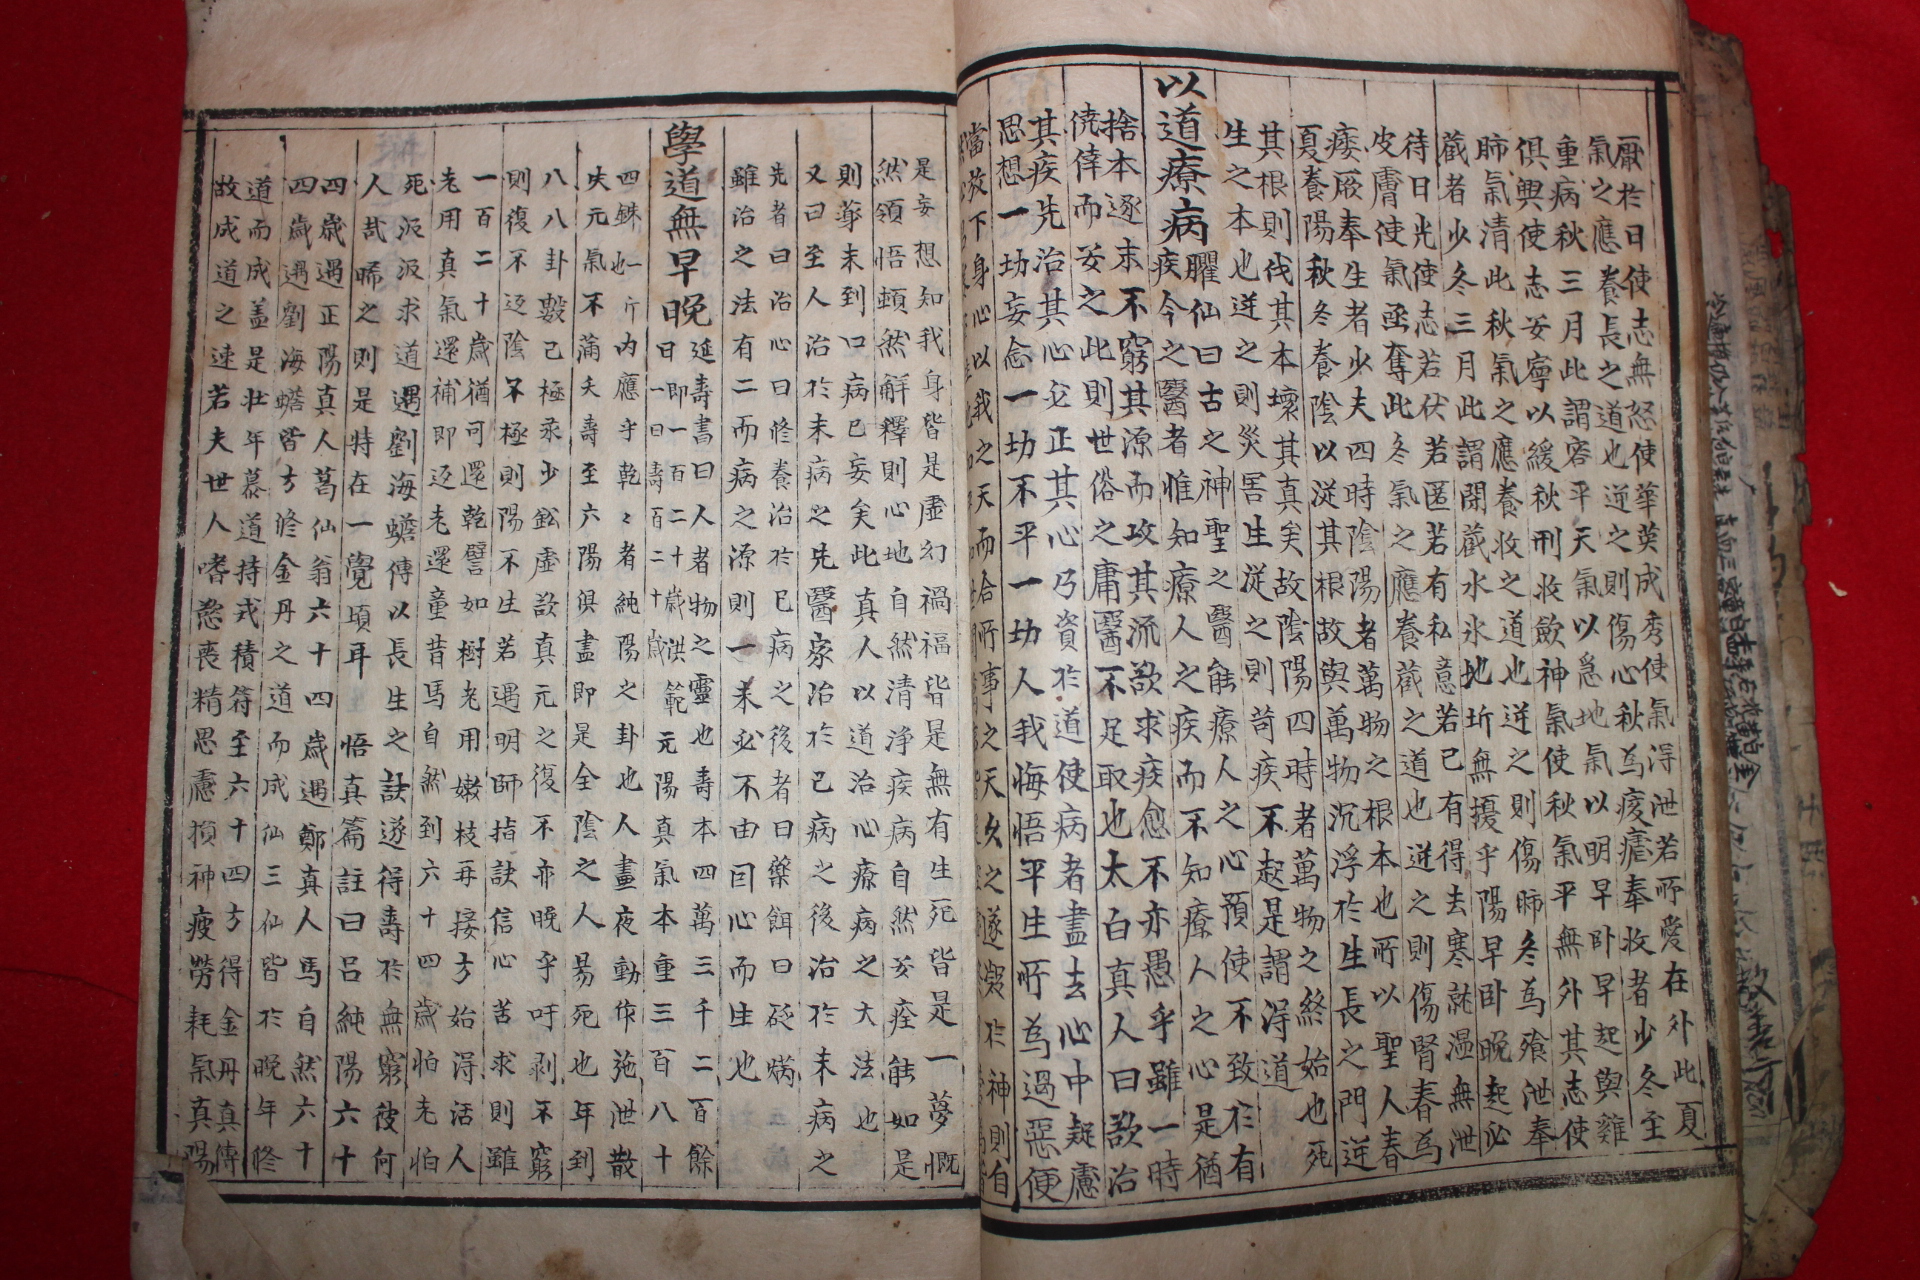 厭於日使志無怒使華英成秀使氣得泄若所愛在外此夏
氣之應養長之道也逆之則傷心秋為痎瘧奉收者少冬至
重病秋三月此謂容平天氣以急地氣以明早卧早起與雞
俱興使志安寧以緩秋刑收歛神氣使秋氣平無外其志使
肺氣清此秋氣之應養收之道也逆之則傷肺冬為飱泄奉
藏者少冬三月此謂閉藏水氷地坼無擾乎陽早卧晚起必
待日光使志若伏若匿若有私意若已有得去寒就溫無泄
皮膚使氣亟奪此冬氣之應養藏之道也逆之則傷腎春為
痿厥奉生者少夫四時陰陽者萬物之根本也所以聖人春
夏養陽秋冬養陰以從其根故與萬物沉浮於生長之門逆
其根則伐其本壞其真矣故陰陽四時者萬物之終始也死
生之本也逆之則災害生從之則苛疾不起是謂淂道
以道療病 臞仙曰古之神聖之醫能療人之心預使不致於有
疾今之醫者惟知療人之疾而不知療人之心是猶
捨本逐末不窮其源而攻其流欲求疾愈不亦愚乎雖一時
僥倖而安之此則世俗之庸醫不足取也太白真人曰欲治
其疾先治其心必正其心乃資於道使病者盡去心中疑慮
思想一切妄念一切不平一切人我悔悟平生所為過惡便
當放下身心以我之天而合所事之天久之遂凝於神則自
是妄想知我身皆是虛幻禍福皆是無有生死皆是一夢慨
然領悟頓然解釋則心地自然清淨疾病自然安痊能如是
則藥未到口病已妄矣此真人以道治心療病之大法也
又曰至人治於未病之先醫家治於已病之後治於未病之
先者曰治心曰修養治於已病之後者曰藥餌曰砭焫
雖治之法有二而病之源則一未必不由因心而生也
學道無早晚 延壽書曰人者物之靈也壽本四萬三千二百餘
日即一百二十歲洪範一曰壽百二十歲元陽真氣本重三百八十
四銖一斤也內應乎乾乾〻者純陽之卦也人晝夜動作施泄散
失元氣不滿夭壽至六陽俱盡即是全陰之人易死也年到
八八卦數已極汞少鈆虛欲真元之復不亦晚乎吁剥不窮
則復不返陰不極則陽不生若遇明師指訣信心苦求則雖
一百二十歲猶可還乾譬如樹老用嫩枝再接方始淂活人
老用真氣還補即返老還童昔馬自然到六十四歲怕老怕
死汲汲求道遇劉海蟾傳以長生之訣遂得壽於無窮彼何
人㢤睎之則是特在一覺頃耳 悟真篇註曰呂純陽六十
四歲遇正陽真人葛仙翁六十四歲遇鄭真人馬自然六十
四歲遇劉海蟾皆方修金丹之道而成仙三仙皆於晚年修
道而成盖是壯年慕道持戒積符至六十四方得金丹真傳
故成道之速若夫世人嗜慾喪精思慮損神疲勞耗氣真陽